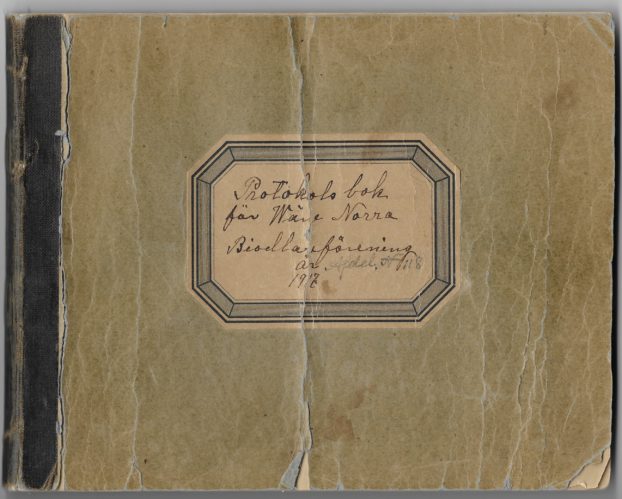 Protokols bok
för Wäse Norra
Biodlareförening
år Afdel. N 118
1917